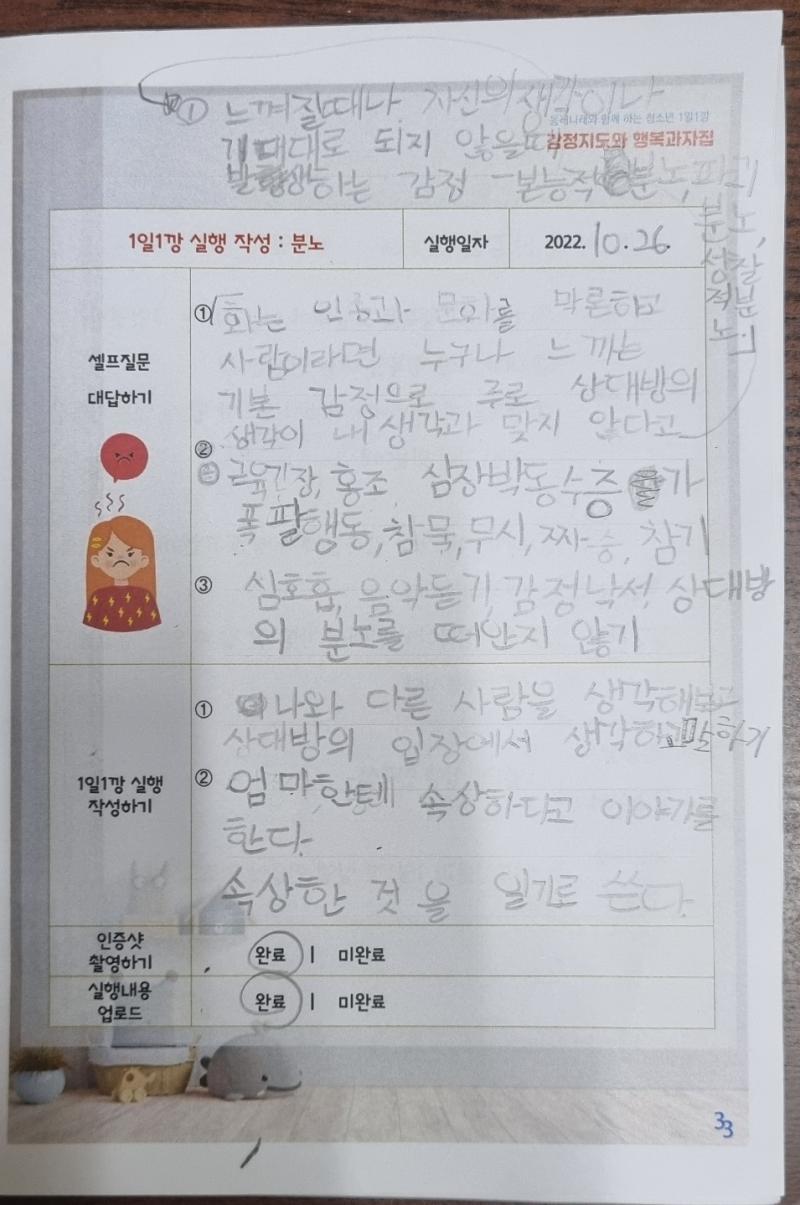 ① 느껴질때나 자신의 생각이나
동래나래와 함께 하는 청소년 1일1깡
기대대로 되지 않을때
감정지도와 행복과자집
발생하는 감정 본능적 분노, 파괴
분노,
성찰
적분
노.」
1일1깡 실행 작성 : 분노
실행일자
2022. 10. 26.
셀프질문
대답하기
①「화는 인종과 문화를 막론하고
사람이라면 누구나 느끼는
기본 감정으로 주로 상대방의
생각이 내 생각과 맞지 않다고
②
근육긴장, 홍조, 심장박동수증가
폭팔행동, 침묵, 무시, 짜증, 참기
③ 심호흡, 음악듣기, 감정낙서, 상대방
의 분노를 떠안지 않기
1일1깡 실행
작성하기
① 나와 다른 사람을 생각해보고
상대방의 입장에서 생각하고말하기
② 엄마한테 속상하다고 이야기를
한다.
속상한 것을 일기로 쓴다.
인증샷
촬영하기
완료 | 미완료
실행내용
업로드
완료 | 미완료
33